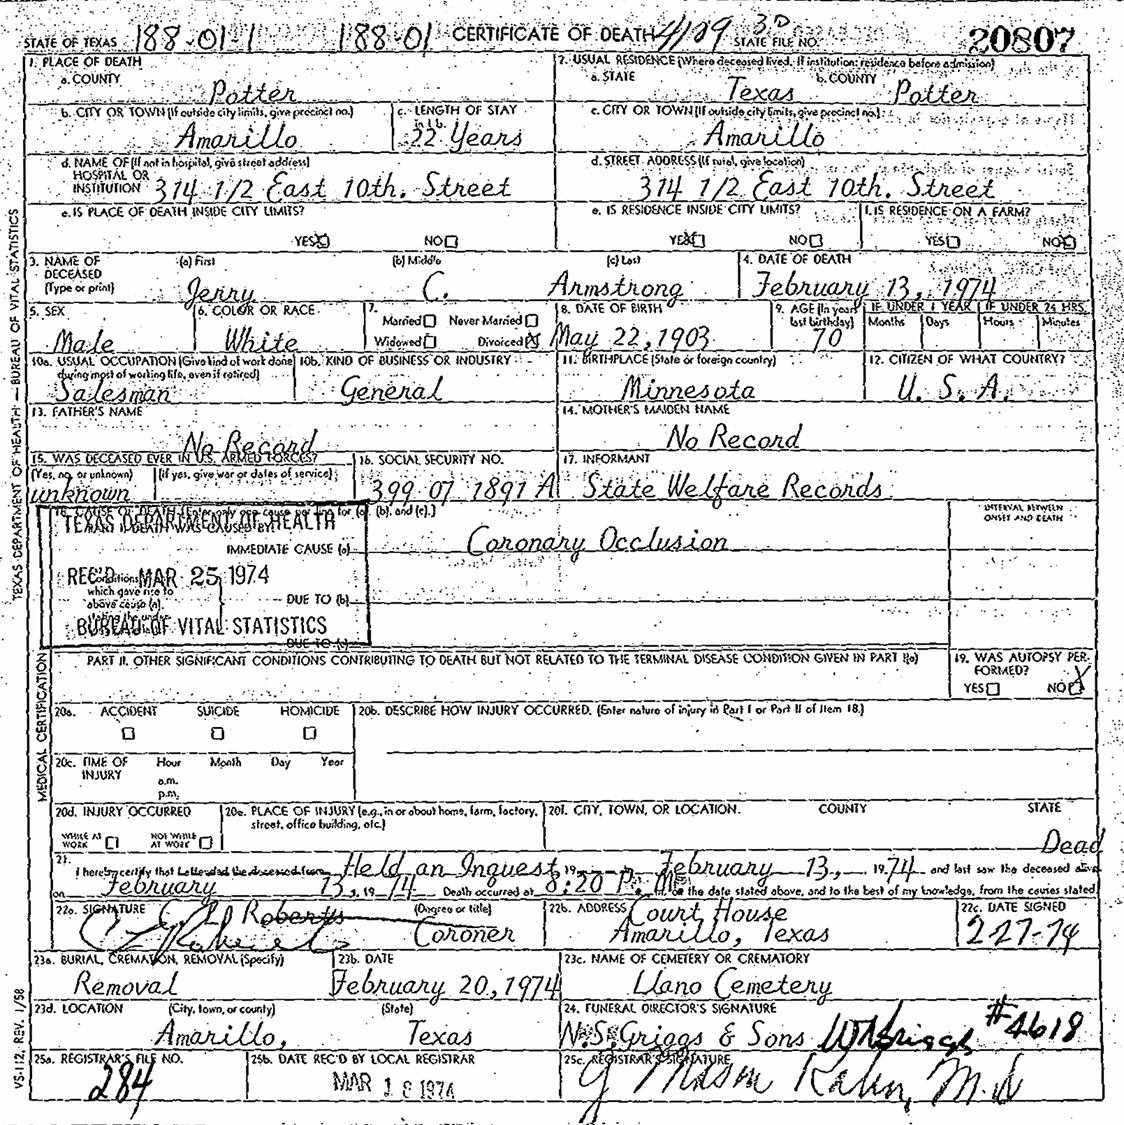 STATE OF TEXAS 188-01-1 188-01 CERTIFICATE OF DEATH 4109 3D STATE FILE NO. 20807
1. PLACE OF DEATH
a. COUNTY
Potter
2. USUAL RESIDENCE (Where deceased lived. If institution: residence before admission)
a. STATE
Texas
b. COUNTY
Potter
b. CITY OR TOWN (If outside city limits, give precinct no.)
Amarillo
c. LENGTH OF STAY
in 1b.
22 Years
c. CITY OR TOWN (If outside city limits, give precinct no.)
Amarillo
d. NAME OF (If not in hospital, give street address)
HOSPITAL OR
INSTITUTION 314 1/2 East 10th. Street
d. STREET ADDRESS (If rural, give location)
314 1/2 East 10th. Street
e. IS PLACE OF DEATH INSIDE CITY LIMITS?
YES X NO
e. IS RESIDENCE INSIDE CITY LIMITS?
YES X NO
f. IS RESIDENCE ON A FARM?
YES NO X
3. NAME OF
DECEASED
(Type or print)
(a) First
Jerry
(b) Middle
C.
(c) Last
Armstrong
4. DATE OF DEATH
February 13, 1974
5. SEX
Male
6. COLOR OR RACE
White
7.
Married Never Married
Widowed Divorced X
8. DATE OF BIRTH
May 22, 1903
9. AGE (In years
last birthday)
70
IF UNDER 1 YEAR
Months Days
IF UNDER 24 HRS.
Hours Minutes
10a. USUAL OCCUPATION (Give kind of work done
during most of working life, even if retired)
Salesman
10b. KIND OF BUSINESS OR INDUSTRY
General
11. BIRTHPLACE (State or foreign country)
Minnesota
12. CITIZEN OF WHAT COUNTRY?
U. S. A.
13. FATHER'S NAME
No Record
14. MOTHER'S MAIDEN NAME
No Record
15. WAS DECEASED EVER IN U.S. ARMED FORCES?
(Yes, no, or unknown) (If yes, give war or dates of service)
unknown
16. SOCIAL SECURITY NO.
399 07 1891 A
17. INFORMANT
State Welfare Records
18. CAUSE OF DEATH [Enter only one cause per line for (a), (b), and (c).]
PART I. DEATH WAS CAUSED BY:
INTERVAL BETWEEN
ONSET AND DEATH
IMMEDIATE CAUSE (a) Coronary Occlusion
Conditions
which gave rise to
above cause (a)
stating the under
DUE TO (b)
DUE TO (c)
TEXAS DEPARTMENT OF HEALTH
REC'D MAR 25 1974
BUREAU OF VITAL STATISTICS
PART II. OTHER SIGNIFICANT CONDITIONS CONTRIBUTING TO DEATH BUT NOT RELATED TO THE TERMINAL DISEASE CONDITION GIVEN IN PART I(a)
19. WAS AUTOPSY PER-
FORMED?
YES NO X
20a. ACCIDENT SUICIDE HOMICIDE
20b. DESCRIBE HOW INJURY OCCURRED. (Enter nature of injury in Part I or Part II of Item 18.)
20c. TIME OF
INJURY
Hour Month Day Year
a.m.
p.m.
20d. INJURY OCCURRED
WHILE AT
WORK
NOT WHILE
AT WORK
20e. PLACE OF INJURY (e.g., in or about home, farm, factory,
street, office building, etc.)
20f. CITY, TOWN, OR LOCATION. COUNTY STATE
Dead
21.
I hereby certify that I attended the deceased from Held an Inquest 19 February 13, 1974 and last saw the deceased alive
on February 13, 1974 Death occurred at 8:20 P. M. on the date stated above, and to the best of my knowledge, from the causes stated.
22a. SIGNATURE (Degree or title)
Roberts Coroner
22b. ADDRESS Court House
Amarillo, Texas
22c. DATE SIGNED
2-27-74
23a. BURIAL, CREMATION, REMOVAL (Specify)
Removal
23b. DATE
February 20, 1974
23c. NAME OF CEMETERY OR CREMATORY
Llano Cemetery
23d. LOCATION (City, town, or county) (State)
Amarillo, Texas
24. FUNERAL DIRECTOR'S SIGNATURE
N.S. Griggs & Sons #4618
25a. REGISTRAR'S FILE NO.
284
25b. DATE REC'D BY LOCAL REGISTRAR
MAR 18 1974
25c. REGISTRAR'S SIGNATURE
TEXAS DEPARTMENT OF HEALTH — BUREAU OF VITAL STATISTICS
MEDICAL CERTIFICATION
VS-112, REV. 1/58